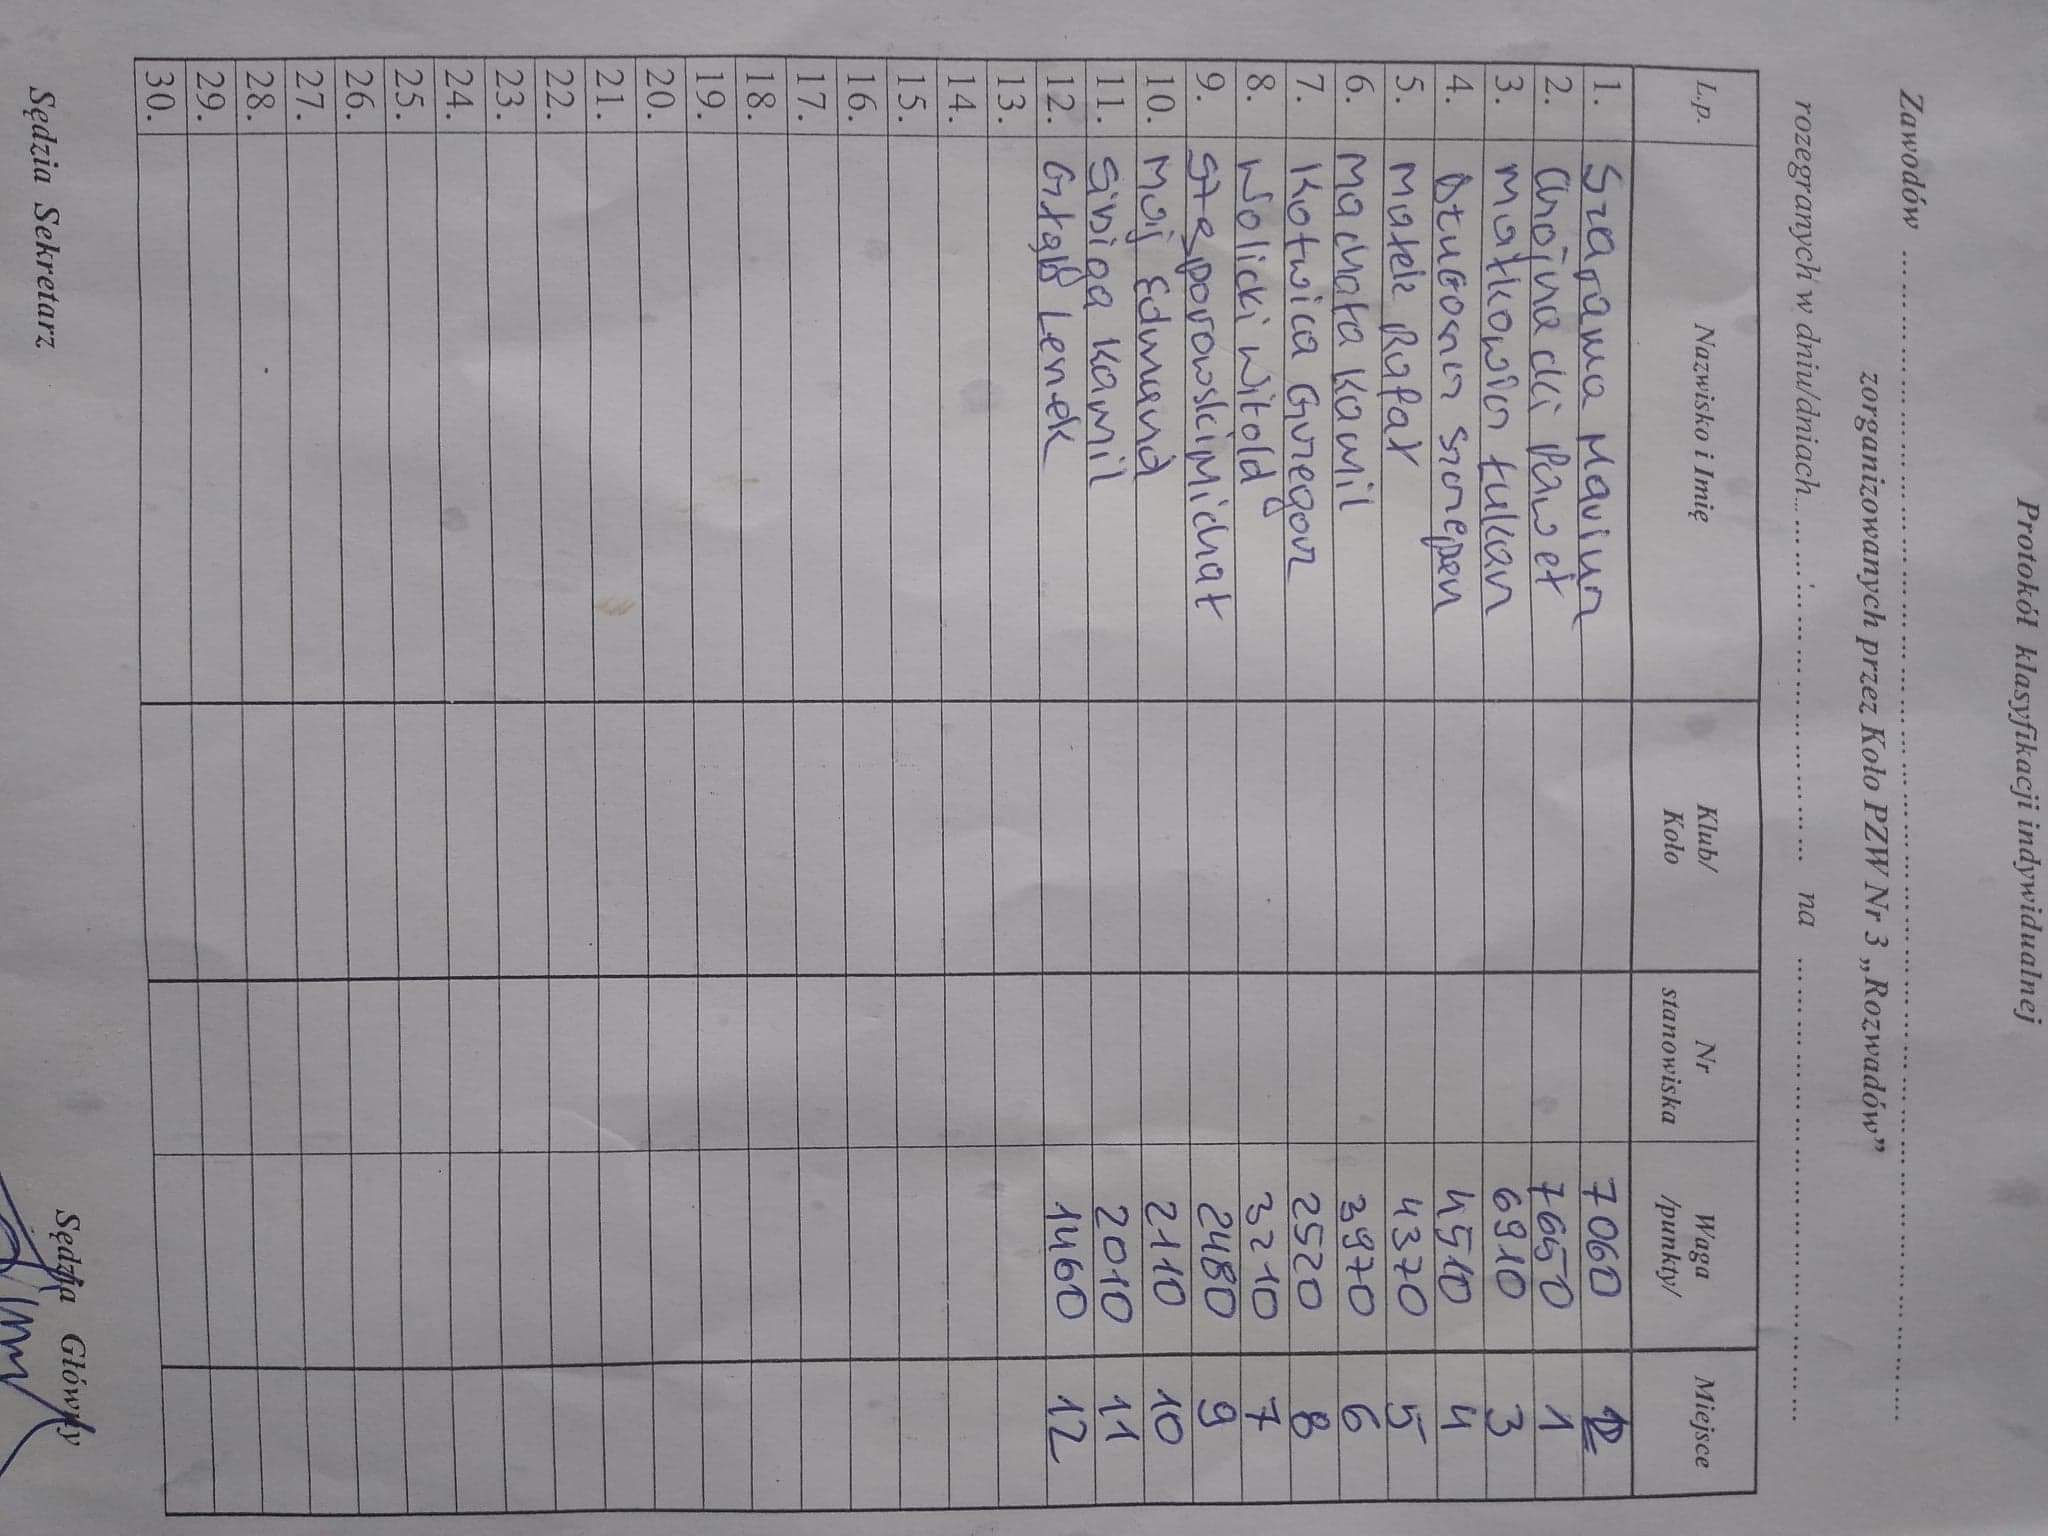 Protokół klasyfikacji indywidualnej
Zawodów ...........................................................
zorganizowanych przez Koło PZW Nr 3 „Rozwadów”
rozegranych w dniu/dniach .............................. na ..............................
L.p. Nazwisko i Imię Klub/ Koło Nr stanowiska Waga /punkty/ Miejsce
1. Szarama Mariusz 7060 2
2. Chojnacki Paweł 7650 1
3. Małkowicz Łukasz 6910 3
4. Długosz Szczepan 4510 4
5. Małek Rafał 4370 5
6. Machała Kamil 3970 6
7. Kotwica Grzegorz 2520 8
8. Wolicki Witold 3210 7
9. Stęporowski Michał 2480 9
10. Moij Edmund 2110 10
11. Kamil 2010 11
12. Głąb Lenek 1460 12
13.
14.
15.
16.
17.
18.
19.
20.
21.
22.
23.
24.
25.
26.
27.
28.
29.
30.
Sędzia Sekretarz Sędzia Główny